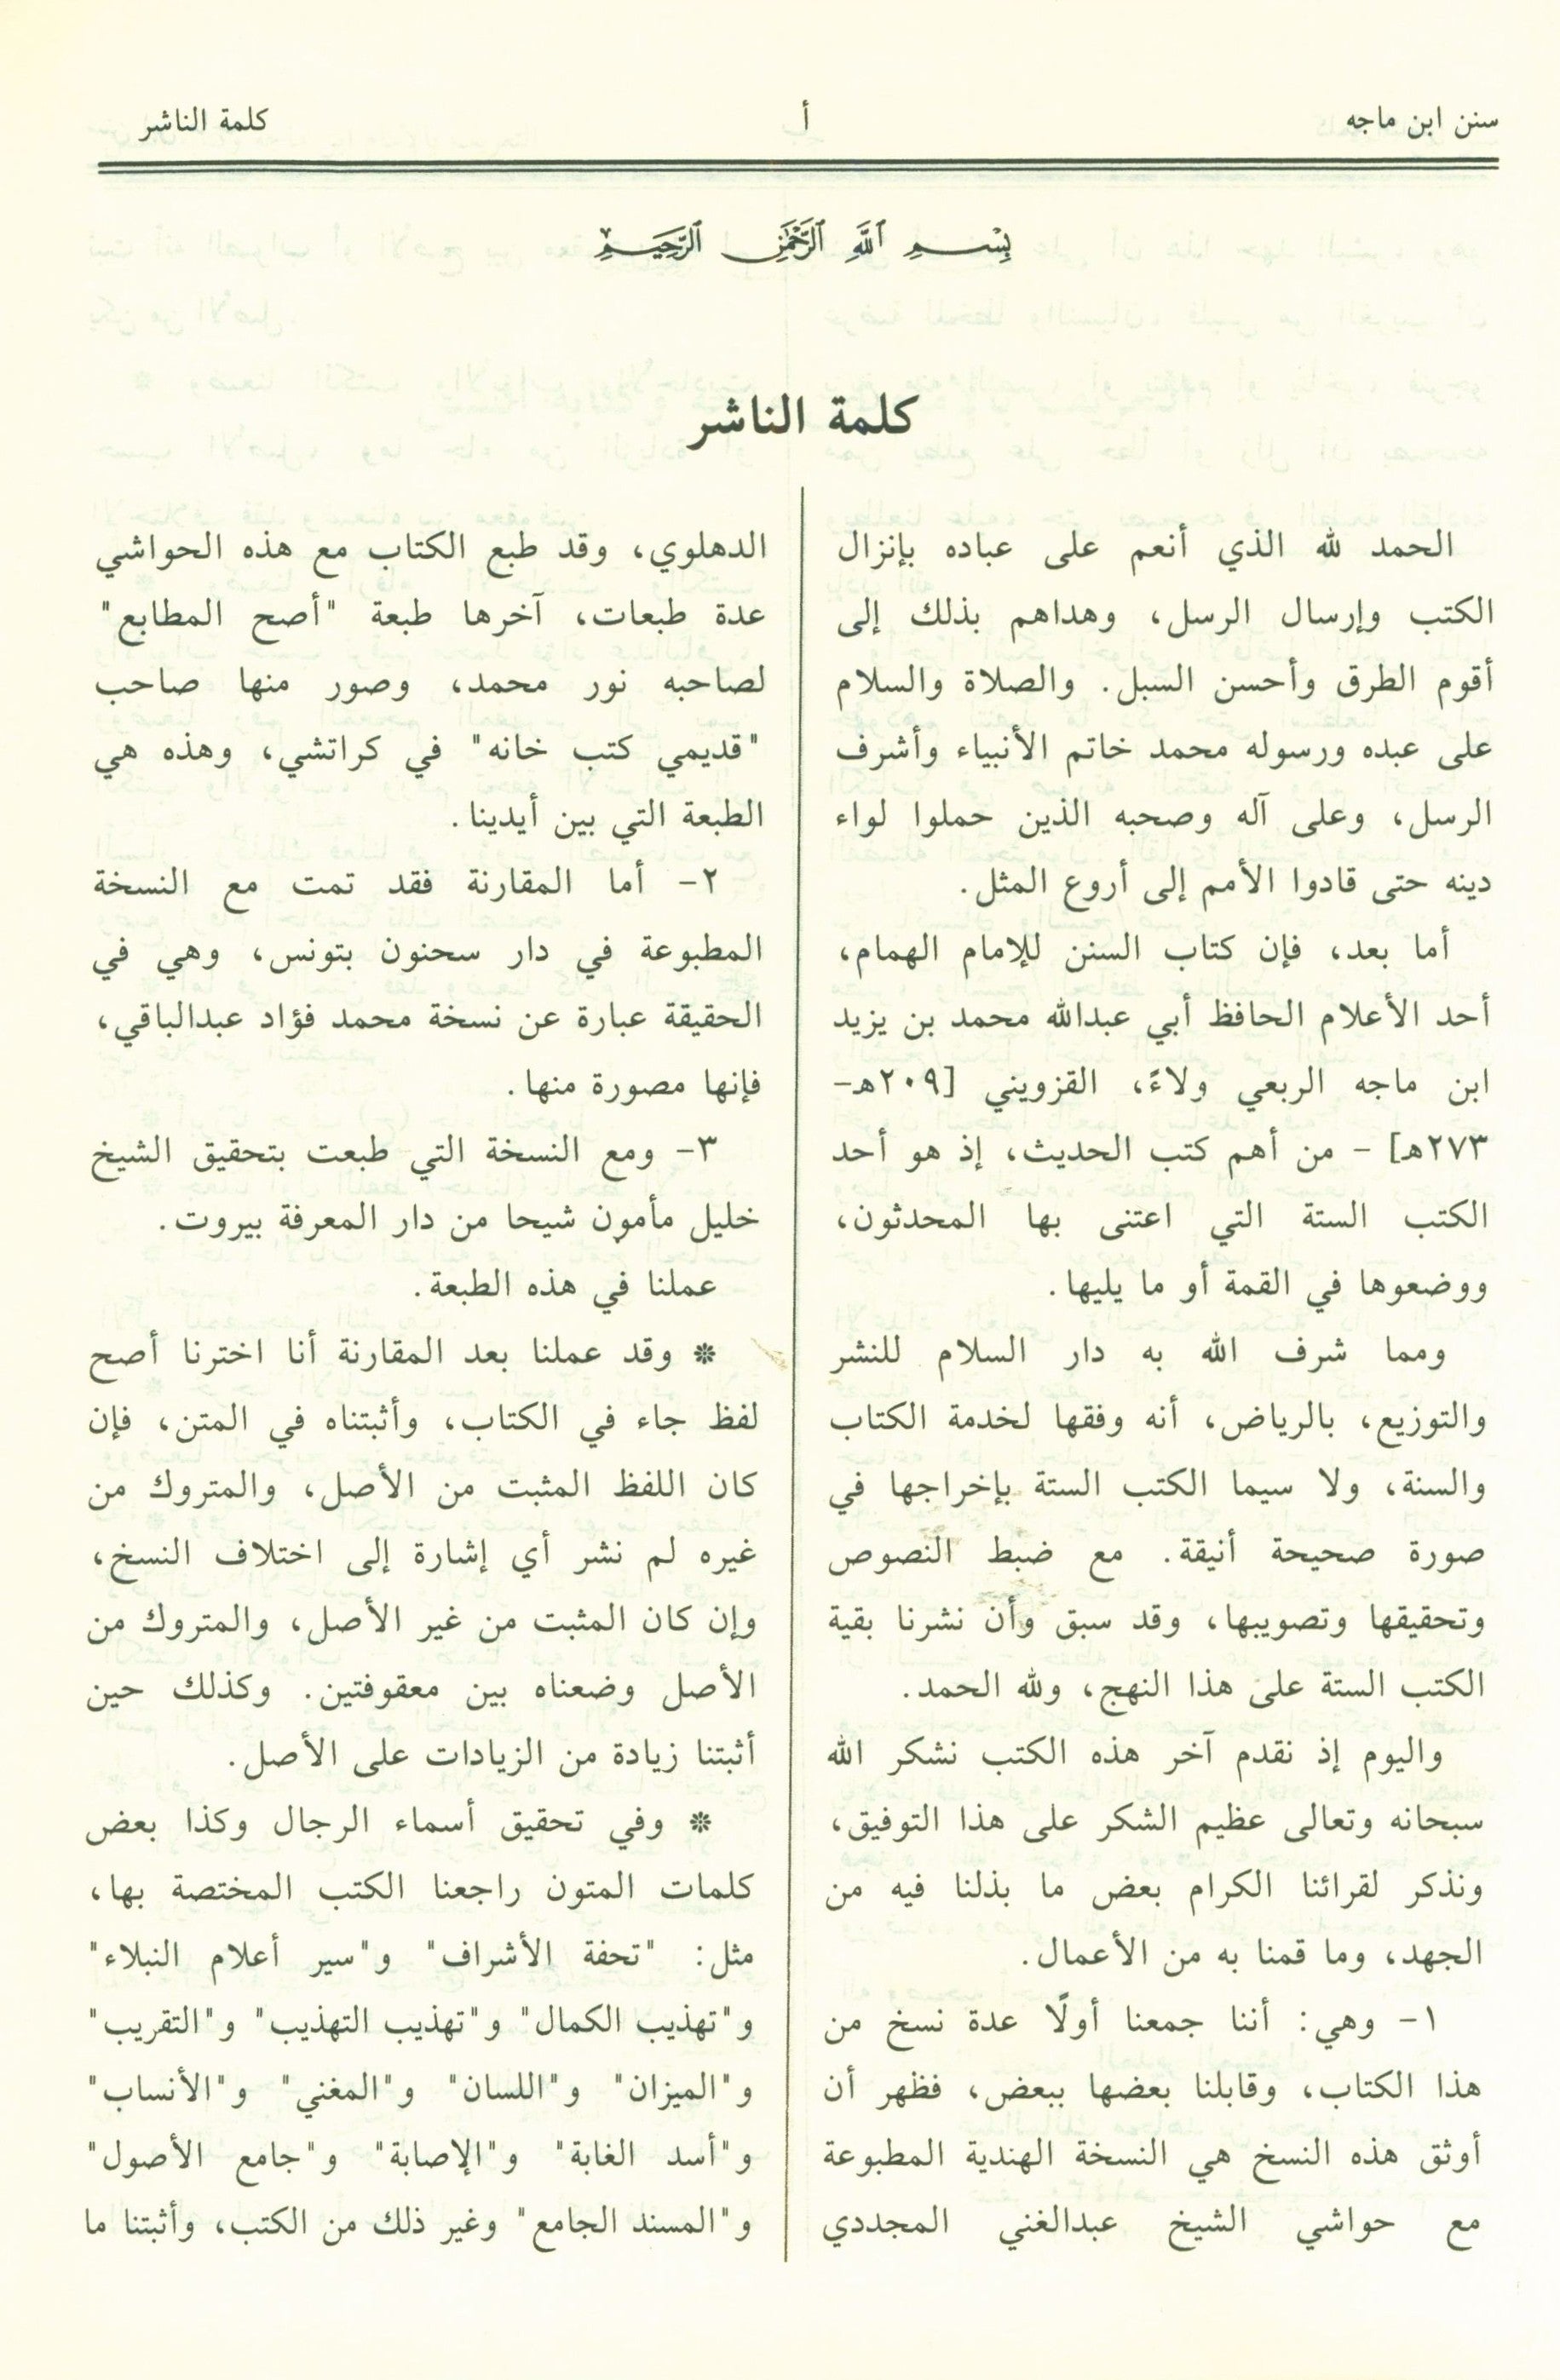 سنن ابن ماجه
أ
كلمة الناشر
بِسْمِ اللَّهِ الرَّحْمَٰنِ الرَّحِيمِ
كلمة الناشر
الحمد لله الذي أنعم على عباده بإنزال
الكتب وإرسال الرسل، وهداهم بذلك إلى
أقوم الطرق وأحسن السبل. والصلاة والسلام
على عبده ورسوله محمد خاتم الأنبياء وأشرف
الرسل، وعلى آله وصحبه الذين حملوا لواء
دينه حتى قادوا الأمم إلى أروع المثل.
أما بعد، فإن كتاب السنن للإمام الهمام،
أحد الأعلام الحافظ أبي عبدالله محمد بن يزيد
ابن ماجه الربعي ولاءً، القزويني [٢٠٩هـ-
٢٧٣هـ] - من أهم كتب الحديث، إذ هو أحد
الكتب الستة التي اعتنى بها المحدثون،
ووضعوها في القمة أو ما يليها.
ومما شرف الله به دار السلام للنشر
والتوزيع، بالرياض، أنه وفقها لخدمة الكتاب
والسنة، ولا سيما الكتب الستة بإخراجها في
صورة صحيحة أنيقة. مع ضبط النصوص
وتحقيقها وتصويبها، وقد سبق وأن نشرنا بقية
الكتب الستة على هذا النهج، ولله الحمد.
واليوم إذ نقدم آخر هذه الكتب نشكر الله
سبحانه وتعالى عظيم الشكر على هذا التوفيق،
ونذكر لقرائنا الكرام بعض ما بذلنا فيه من
الجهد، وما قمنا به من الأعمال.
١- وهي: أننا جمعنا أولًا عدة نسخ من
هذا الكتاب، وقابلنا بعضها ببعض، فظهر أن
أوثق هذه النسخ هي النسخة الهندية المطبوعة
مع حواشي الشيخ عبدالغني المجددي
الدهلوي، وقد طبع الكتاب مع هذه الحواشي
عدة طبعات، آخرها طبعة "أصح المطابع"
لصاحبه نور محمد، وصور منها صاحب
"قديمي كتب خانه" في كراتشي، وهذه هي
الطبعة التي بين أيدينا.
٢- أما المقارنة فقد تمت مع النسخة
المطبوعة في دار سحنون بتونس، وهي في
الحقيقة عبارة عن نسخة محمد فؤاد عبدالباقي،
فإنها مصورة منها.
٣- ومع النسخة التي طبعت بتحقيق الشيخ
خليل مأمون شيحا من دار المعرفة بيروت.
عملنا في هذه الطبعة.
* وقد عملنا بعد المقارنة أنا اخترنا أصح
لفظ جاء في الكتاب، وأثبتناه في المتن، فإن
كان اللفظ المثبت من الأصل، والمتروك من
غيره لم نشر أي إشارة إلى اختلاف النسخ،
وإن كان المثبت من غير الأصل، والمتروك من
الأصل وضعناه بين معقوفتين. وكذلك حين
أثبتنا زيادة من الزيادات على الأصل.
* وفي تحقيق أسماء الرجال وكذا بعض
كلمات المتون راجعنا الكتب المختصة بها،
مثل: "تحفة الأشراف" و"سير أعلام النبلاء"
و"تهذيب الكمال" و"تهذيب التهذيب" و"التقريب"
و"الميزان" و"اللسان" و"المغني" و"الأنساب"
و"أسد الغابة" و"الإصابة" و"جامع الأصول"
و"المسند الجامع" وغير ذلك من الكتب، وأثبتنا ما